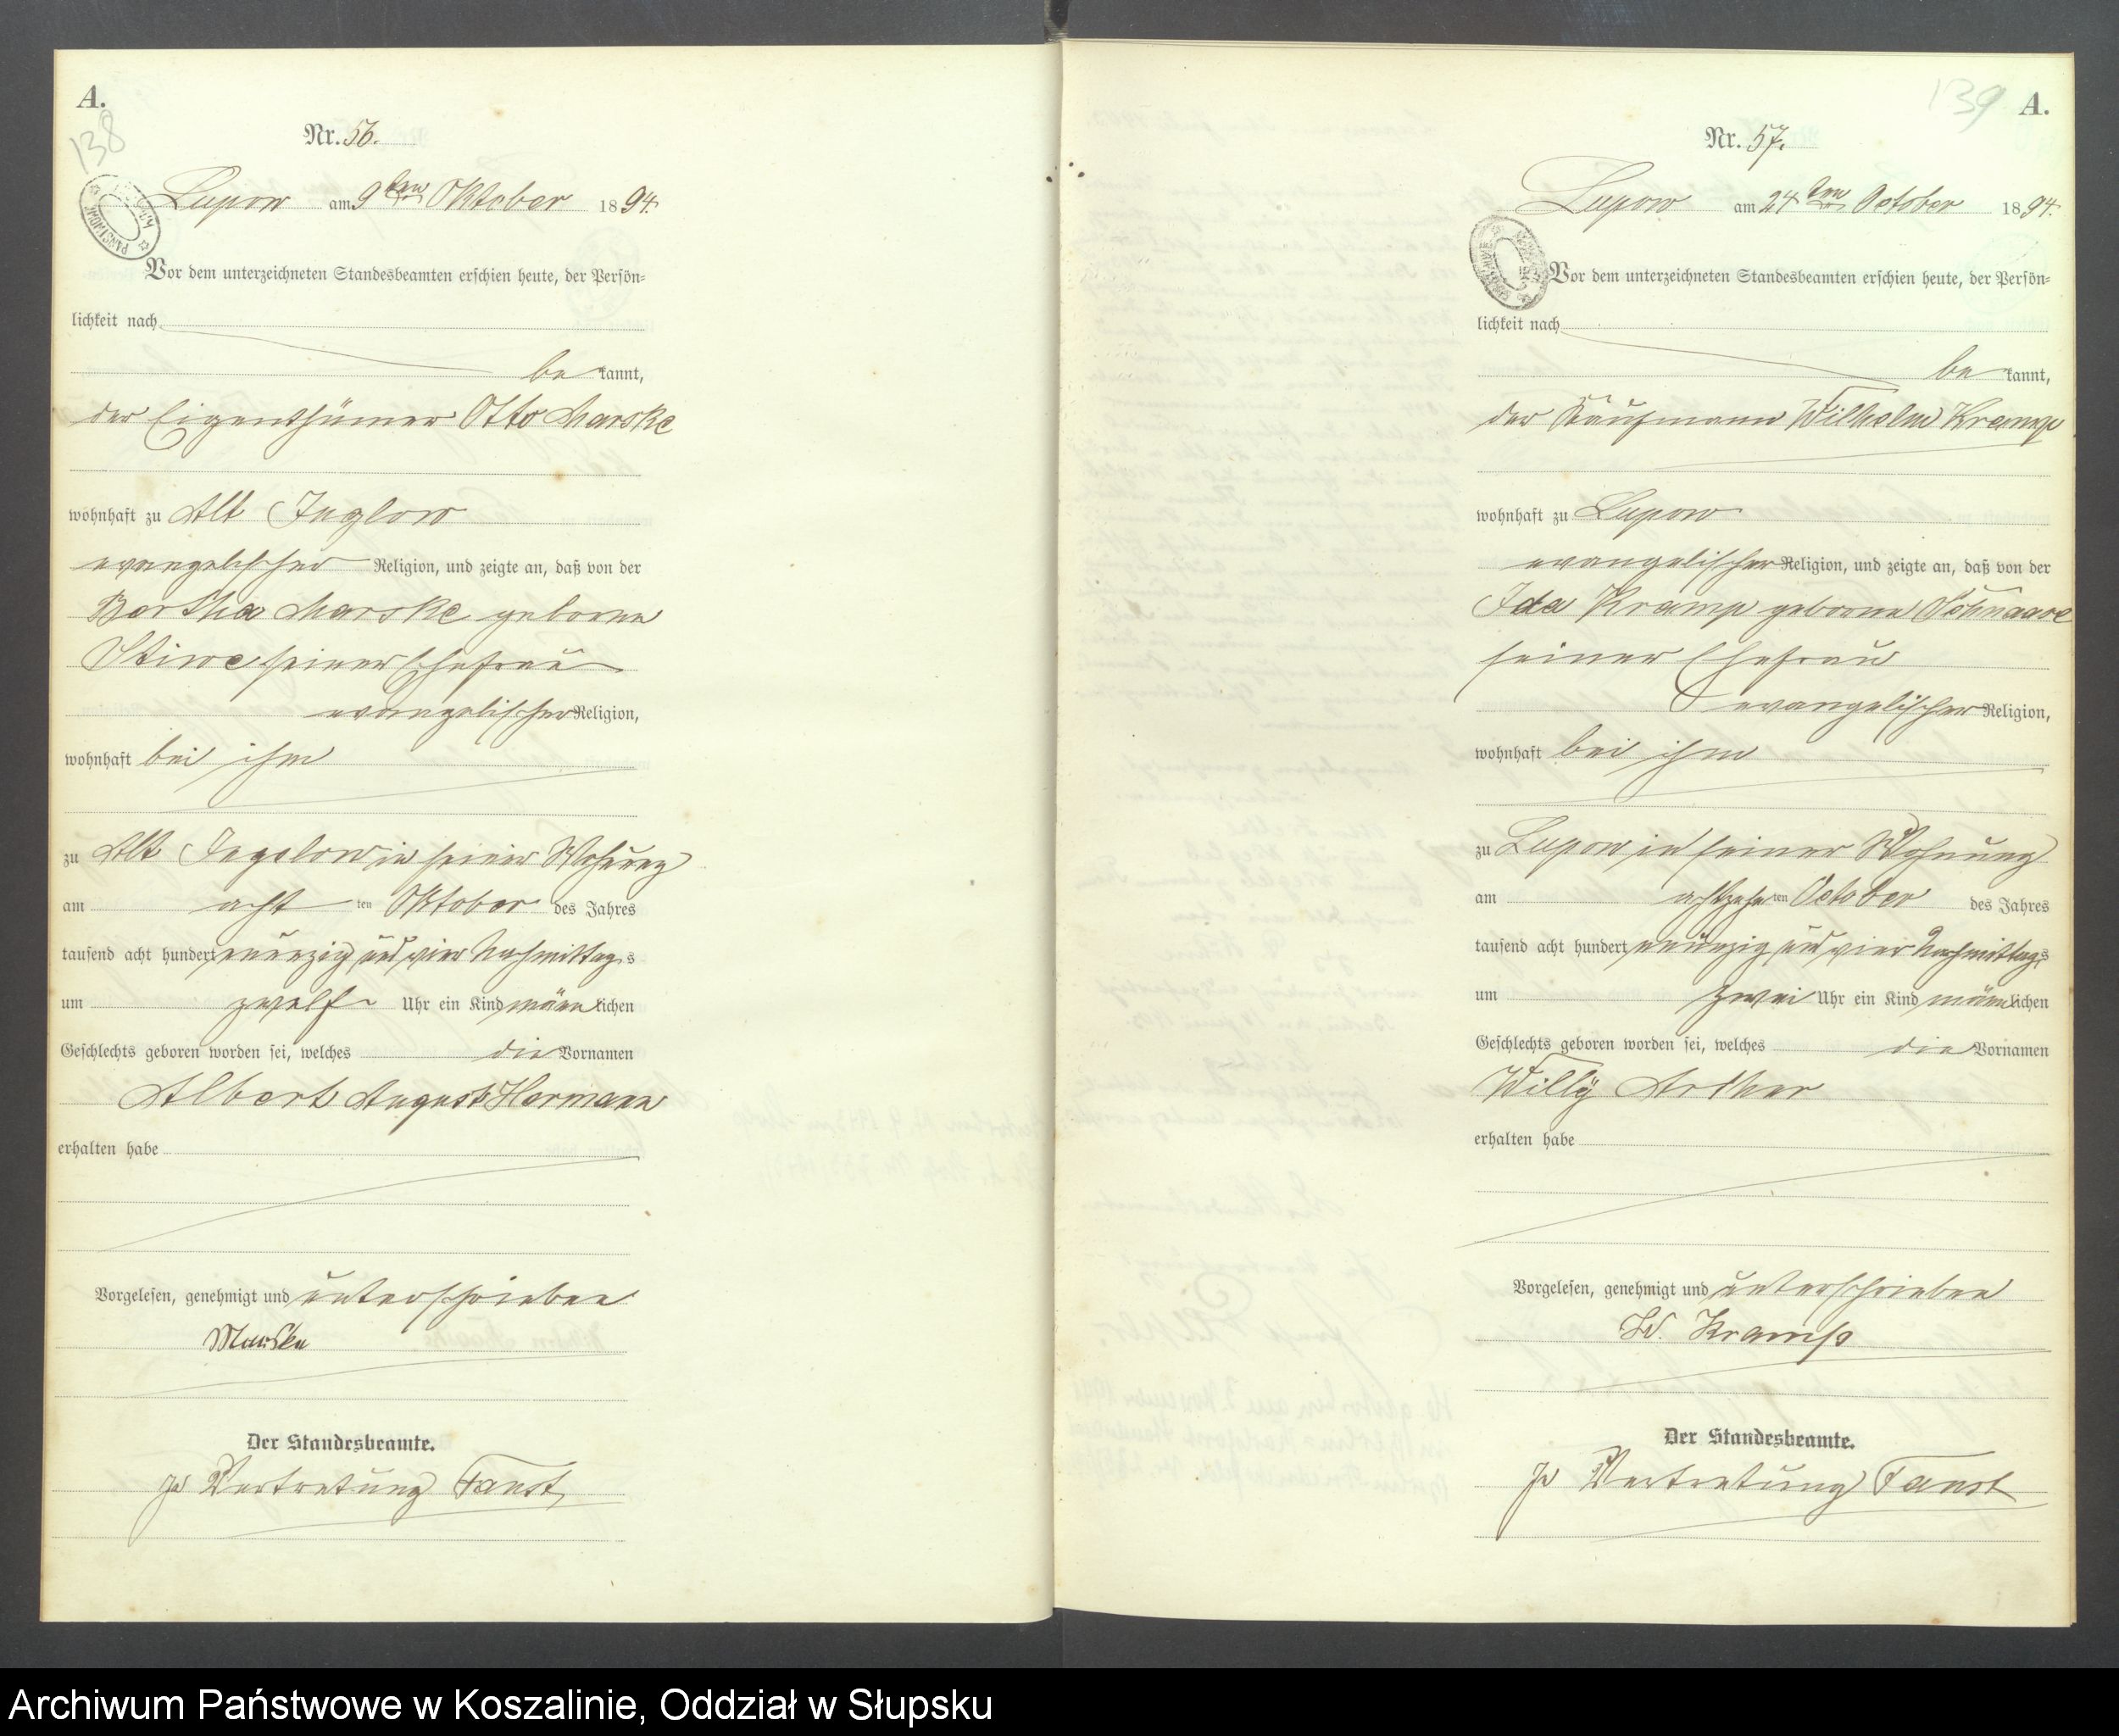 A.
138
Nr. 56.
Lupow am 9ten Oktober 1894.
Vor dem unterzeichneten Standesbeamten erschien heute, der Persön=
lichkeit nach
be kannt,
der Eigenthümer Otto Marske
wohnhaft zu Alt Juglow
evangelischer Religion, und zeigte an, daß von der
Bertha Marske geborne
Stiwe seiner Ehefrau
evangelischer Religion,
wohnhaft bei ihm
zu Alt Jugelow in seiner Wohnung
am acht ten Oktober des Jahres
tausend acht hundert neunzig und vier Nachmittag s
um zwölf Uhr ein Kind männ lichen
Geschlechts geboren worden sei, welches die Vornamen
Albert August Hermann
erhalten habe
Vorgelesen, genehmigt und unterschrieben
Marske
Der Standesbeamte.
In Vertretung Faust
139
A.
Nr. 57.
Lupow am 24ten October 1894.
Vor dem unterzeichneten Standesbeamten erschien heute, der Persön=
lichkeit nach
be kannt,
der Kaufmann Wilhelm Kramp
wohnhaft zu Lupow
evangelischer Religion, und zeigte an, daß von der
Ida Kramp geborne
seiner Ehefrau
evangelischer Religion,
wohnhaft bei ihm
zu Lupow in seiner Wohnung
am achtzehn ten October des Jahres
tausend acht hundert neunzig und vier Nachmittag s
um zwei Uhr ein Kind männ lichen
Geschlechts geboren worden sei, welches die Vornamen
Willy Arthur
erhalten habe
Vorgelesen, genehmigt und unterschrieben
W. Kramp
Der Standesbeamte.
In Vertretung Faust
Archiwum Państwowe w Koszalinie, Oddział w Słupsku